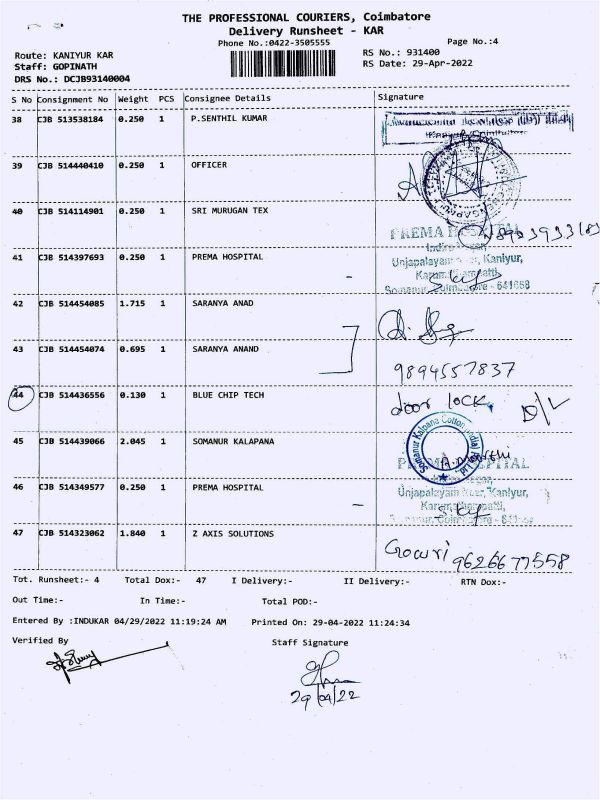 THE PROFESSIONAL COURIERS, Coimbatore
Delivery Runsheet - KAR
Phone No.:0422-3505555
Page No.:4
Route: KANIYUR KAR
RS No.: 931400
Staff: GOPINATH
RS Date: 29-Apr-2022
DRS No.: DCJB93140004
S No Consignment No Weight PCS Consignee Details Signature
38 CJB 513538184 0.250 1 P.SENTHIL KUMAR
39 CJB 514440410 0.250 1 OFFICER
40 CJB 514114901 0.250 1 SRI MURUGAN TEX
PREMA HOSPITAL
41 CJB 514397693 0.250 1 PREMA HOSPITAL
Unjapalayam Kaniyur,
Somanur, Coimbatore - 641668
42 CJB 514454085 1.715 1 SARANYA ANAD
43 CJB 514454074 0.695 1 SARANYA ANAND
9894557837
44 CJB 514436556 0.130 1 BLUE CHIP TECH door lock D/L
45 CJB 514439066 2.045 1 SOMANUR KALAPANA
Somanur Kalpana Cotton
PREMA HOSPITAL
46 CJB 514349577 0.250 1 PREMA HOSPITAL
Unjapalayam Kaniyur,
47 CJB 514323062 1.840 1 Z AXIS SOLUTIONS
Gowri 9626677558
Tot. Runsheet:- 4 Total Dox:- 47 I Delivery:- II Delivery:- RTN Dox:-
Out Time:- In Time:- Total POD:-
Entered By :INDUKAR 04/29/2022 11:19:24 AM Printed On: 29-04-2022 11:24:34
Verified By Staff Signature
29/04/22